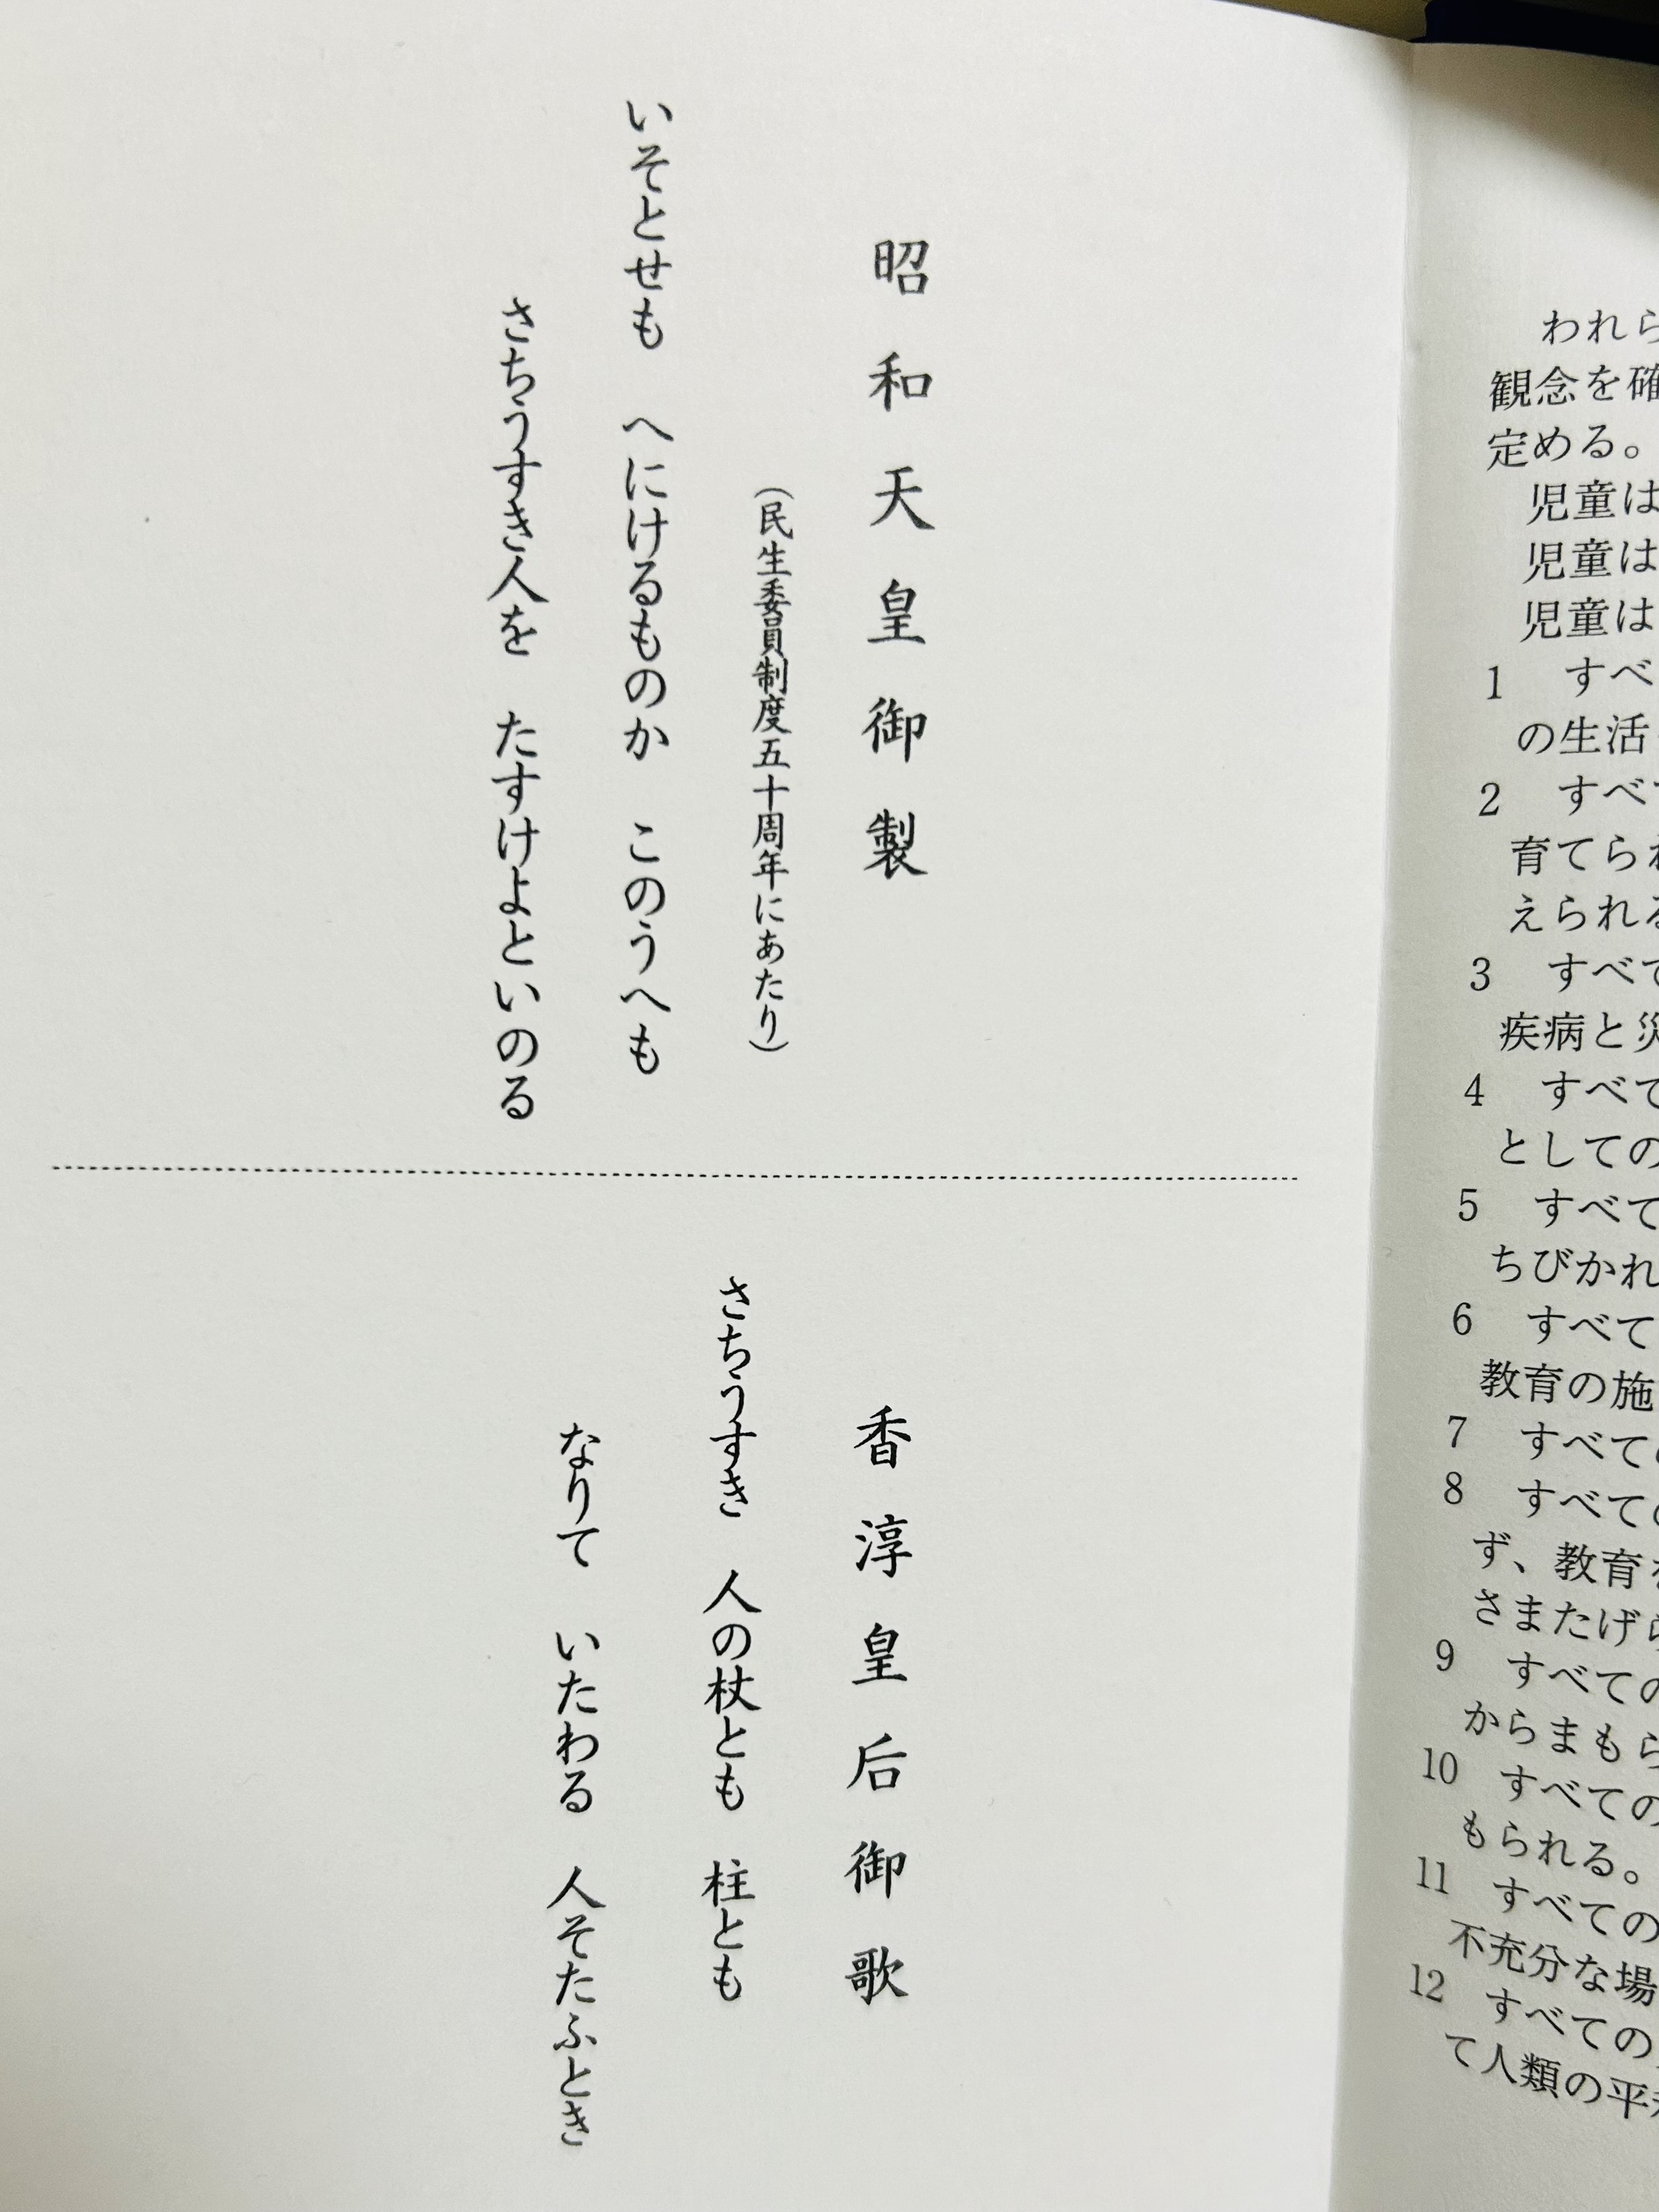 昭和天皇御製
(民生委員制度五十周年にあたり)
いそとせも　へにけるものか　このうへも
さちうすき人を　たすけよといのる
香淳皇后御歌
さちうすき　人の杖とも　柱とも
なりて　いたわる　人そたふとき
われら
観念を確
定める。
児童は
児童は
児童は
1　すべ
の生活
2　すべて
育てられ
えられる
3　すべて
疾病と災
4　すべて
としての
5　すべて
ちびかれ
6　すべて
教育の施
7　すべての
8　すべての
ず、教育を
さまたげら
9　すべての
からまもら
10　すべての
もられる。
11　すべての
不充分な場
12　すべての
て人類の平和